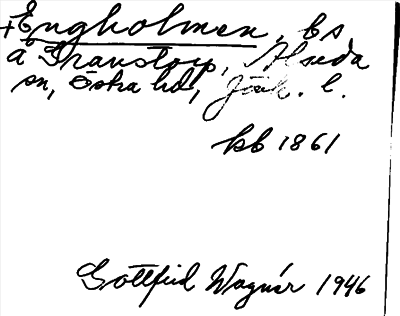 +Engholmen, bs
å Granstorp, Alseda
sn, Östra hd, Jönk. l.
kb 1861
Gottfrid Wagnér 1946